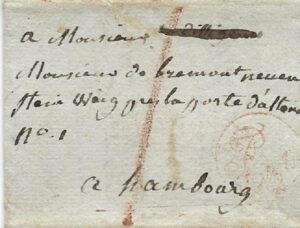 a Monsieur
Monsieur de bremont neveu
stein Weg pres la porte d'altona
No. 1
a hambourg